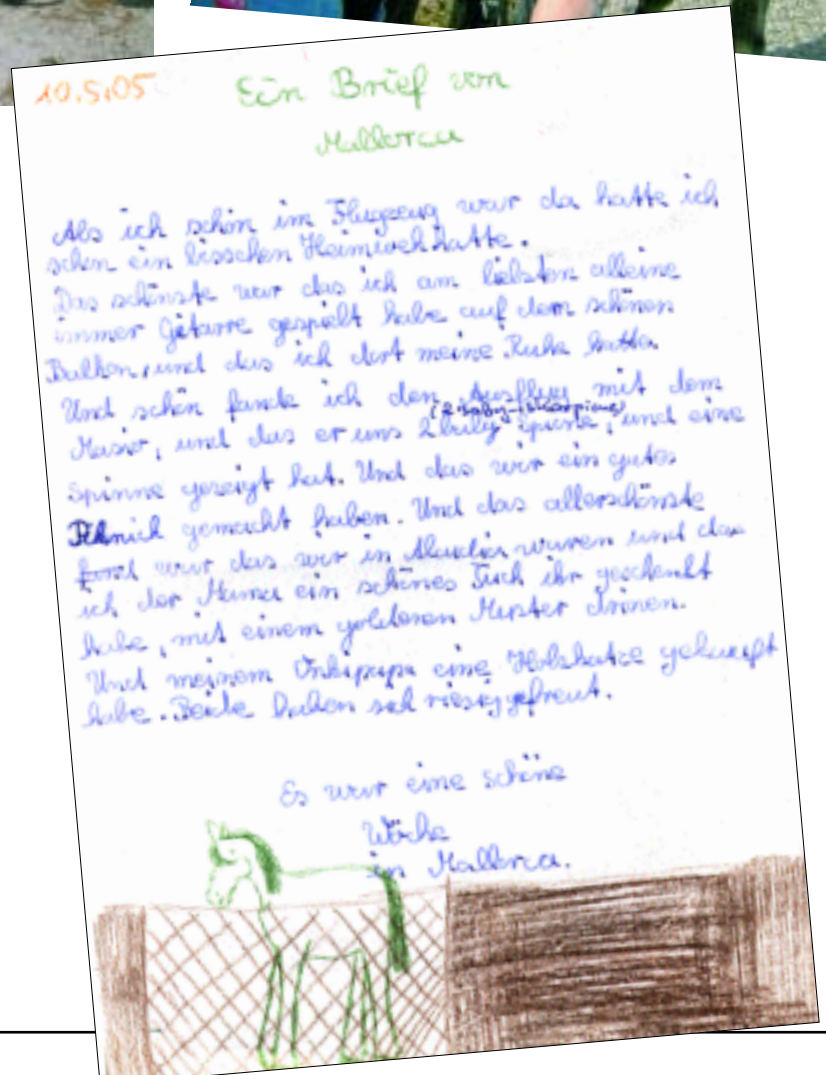 10.5.05
Ein Brief von
Mallorca
Als ich schön im Flugzeug war da hatte ich
schon ein bisschen Heimweh hatte.
Das schönste war das ich am liebsten alleine
immer Gitarre gespielt habe auf dem schönen
Balkon, und das ich dort meine Ruhe hatte.
Und schön fande ich den Ausflug mit dem
(2 baby-skorpione)
Mario, und das er uns 2 baby, und eine
Spinne gezeigt hat. Und das wir ein gutes
Piknick gemacht haben. Und das allerschönste
war das wir in Alcudia waren und das
ich der Mama ein schönes Tuch ihr geschenkt
habe, mit einem goldenen Muster drinen.
Und meinem Onkipapa eine Holzkatze gekauft
habe. Beide haben sich riesig gefreut.
Es war eine schöne
Woche
in Mallorca.